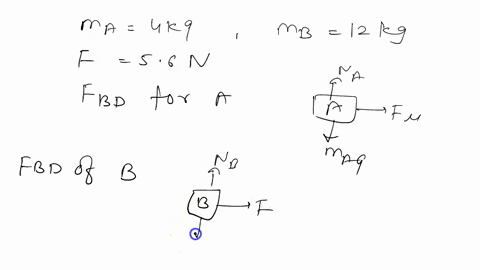 m_A = 4kg , m_B = 12 kg
F = 5.6 N
F_BD for A
N_A
A
F_μ
m_Ag
FBD of B
N_B
B
F